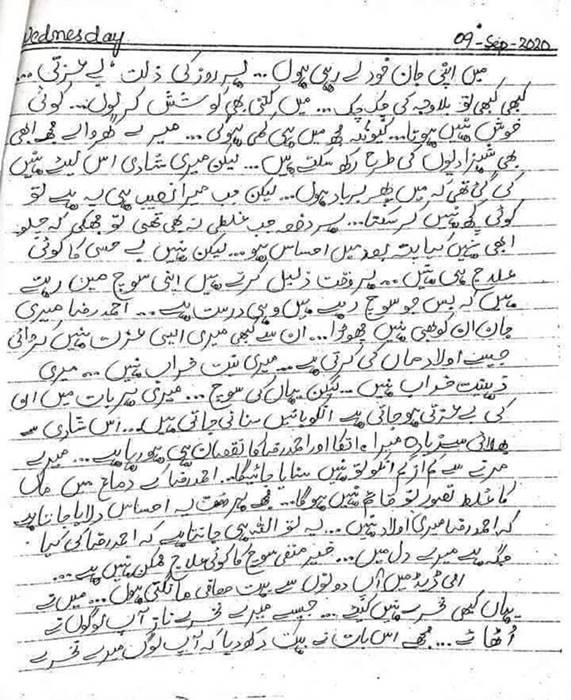 Wednesday 09-Sep-2020
میں اپنی جان خود لے رہی ہوں... ہر روز کی ذلت بے عزتی...
کبھی کبھی تو بلاوجہ کی چک چک... میں کتنی بھی کوشش کر لوں... کوئی
خوش نہیں ہوتا... کیونکہ مجھ میں ہی کمی ہوگی... میرے گھر والے مجھے ابھی
بھی شہزادیوں کی طرح رکھ سکتے ہیں... لیکن میری شادی اس لیئے نہیں
کی گئی تھی کہ میں پھر برباد ہوں... لیکن جب میرا نصیب ہی یہ ہے تو
کوئی کچھ نہیں کر سکتا... ہر دفعہ جب غلطی نہ بھی تھی تو جھکی کہ چلو
ابھی نہیں شاید بعد میں احساس ہو... لیکن نہیں بے حسی کا کوئی
علاج ہی نہیں... ہر وقت ذلیل کرتے ہیں اپنی سوچ میں رہتے
ہیں کہ بس جو سوچ رہے ہیں وہی درست ہے... احمد رضا میری
جان ان کو بھی نہیں چھوڑا... ان سے کبھی میری ایسی عزت نہیں کروائی
جیسے اولاد ماں کی کرتی ہے... میری نیت خراب نہیں... میری
ذہنیت خراب نہیں... لیکن یہاں کی سوچ... میری ہر بات میں ان
کی بے عزتی ہو جاتی ہے انکو باتیں سنائی جاتی ہیں... اس شادی سے
بھلائی سے زیادہ میرا، انکا اور احمد رضا کا نقصان ہی ہو رہا ہے... میرے
مرنے سے کم از کم انکو تو نہیں سنایا جائیگا... احمد رضا کے دماغ میں ماں
کا غلط تصور تو قائم نہیں ہوگا... مجھے ہر وقت یہ احساس دلایا جاتا ہے
کہ احمد رضا میری اولاد نہیں... یہ تو اللہ ہی جانتا ہے کہ احمد رضا کی کیا
جگہ ہے میرے دل میں... خیر منفی سوچ کا کوئی علاج ممکن نہیں ہے...
امی ڈیڈ میں آپ دونوں سے بہت معافی مانگتی ہوں... میں نے
یہاں کبھی نخرے نہیں کیئے... جیسے میرے نخرے ناز آپ لوگوں نے
اُٹھائے... مجھے اس بات نے بہت دکھ دیا کہ آپ لوگ میرے نخرے